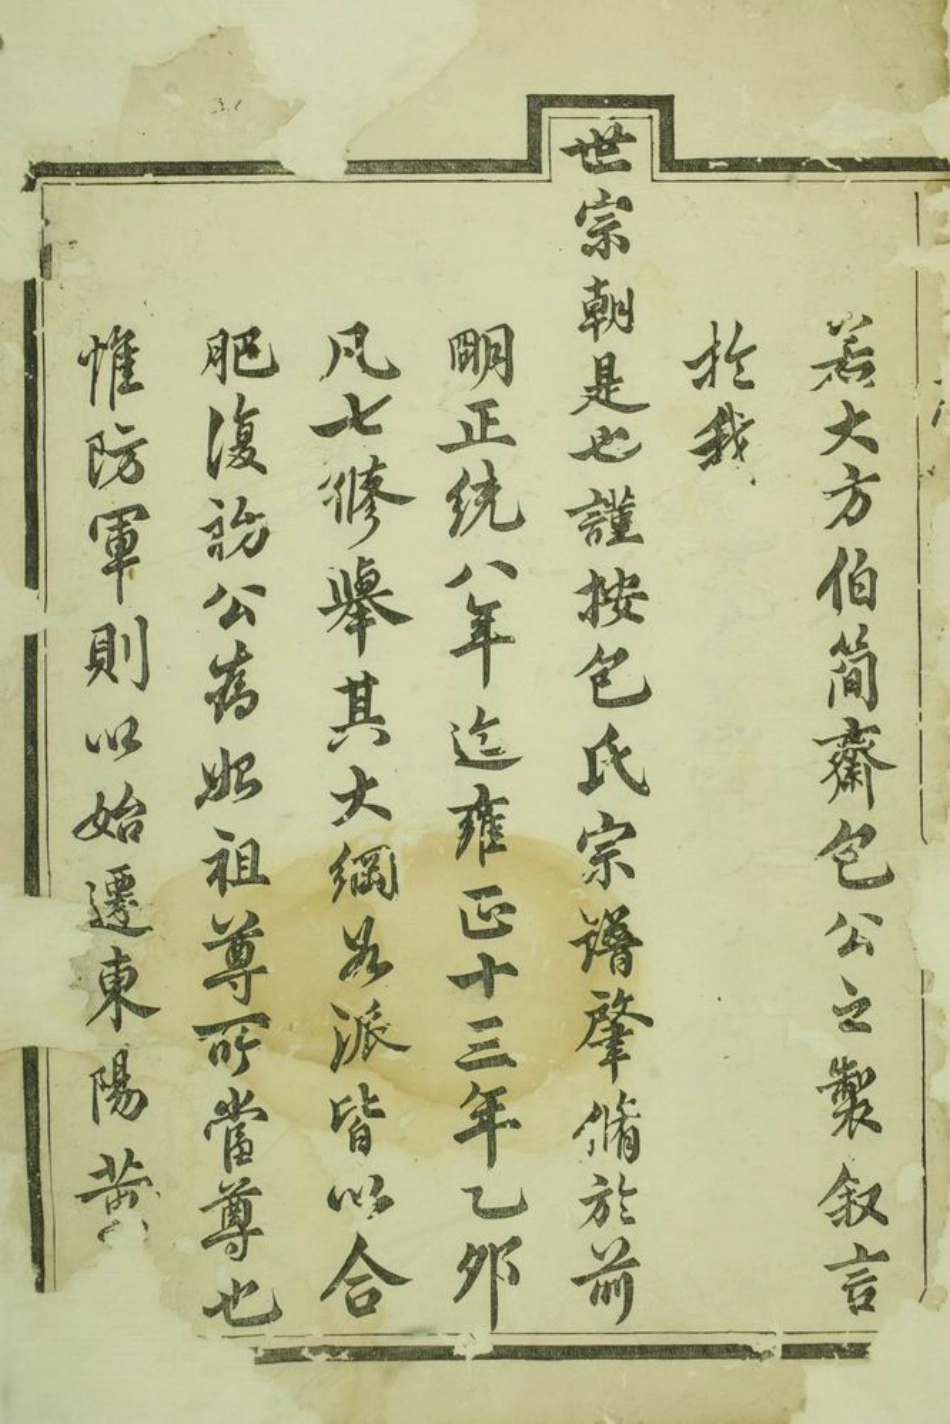 若大方伯简齋包公之製叙言
於我
世宗朝是也謹按包氏宗譜肇脩於前
明正統八年迄雍正十三年乙卯
凡七修舉其大綱各派皆以合
肥復初公為始祖尊所當尊也
惟防軍則以始遷東陽黄